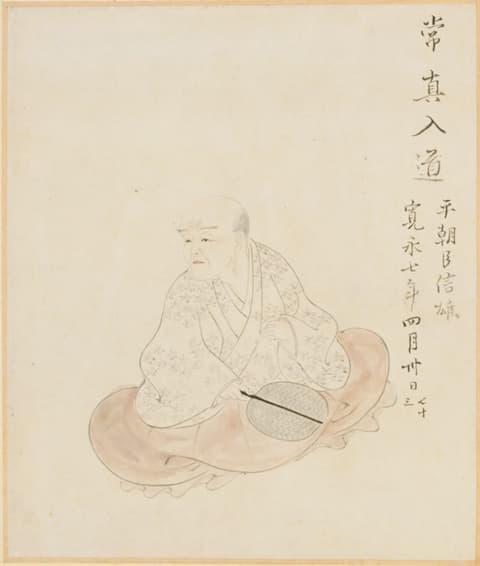 常真入道
平朝臣信雄
寛永七年四月卅日
七十
三